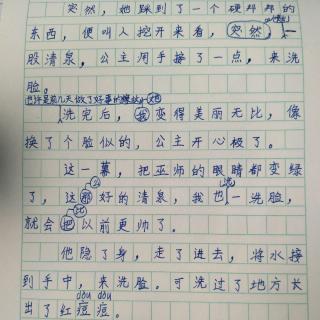 突然，她踩到了一个硬邦邦的
东西，便叫人挖开来看，突然，一
股清泉，公主用手接了一点，来洗
脸。
也许是前几天做了好事的
洗完后，我变得美丽无比，像
换了个脸似的，公主开心极了。
这一幕，把巫师的眼睛都变绿
么
了，这那好的清泉，我也一洗脸，
比
就会把以前更帅了。
他隐了身，走了进去，将水接
到手中，来洗脸。可洗过了地方长
dòu dou
出了红痘痘。